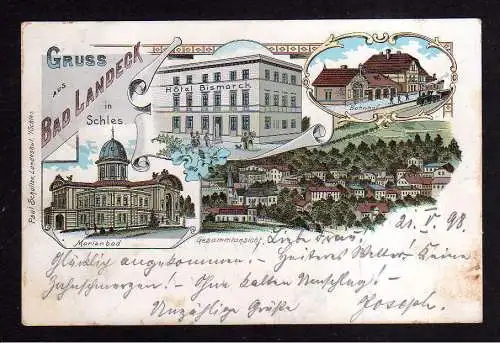 GRUSS
aus
BAD LANDECK
in
Schles
Hôtel Bismarck
Bahnhof
Marienbad
Gesammtansicht.
Paul Schuller, Landeshut i/Schles.
21. V. 98.
Liebe Frau!
Glücklich angekommen! – Heiteres Wetter! Keine
Zahnschmerzen! – Ohne kalten Umschlag! –
Unzählige Grüße
Joseph.